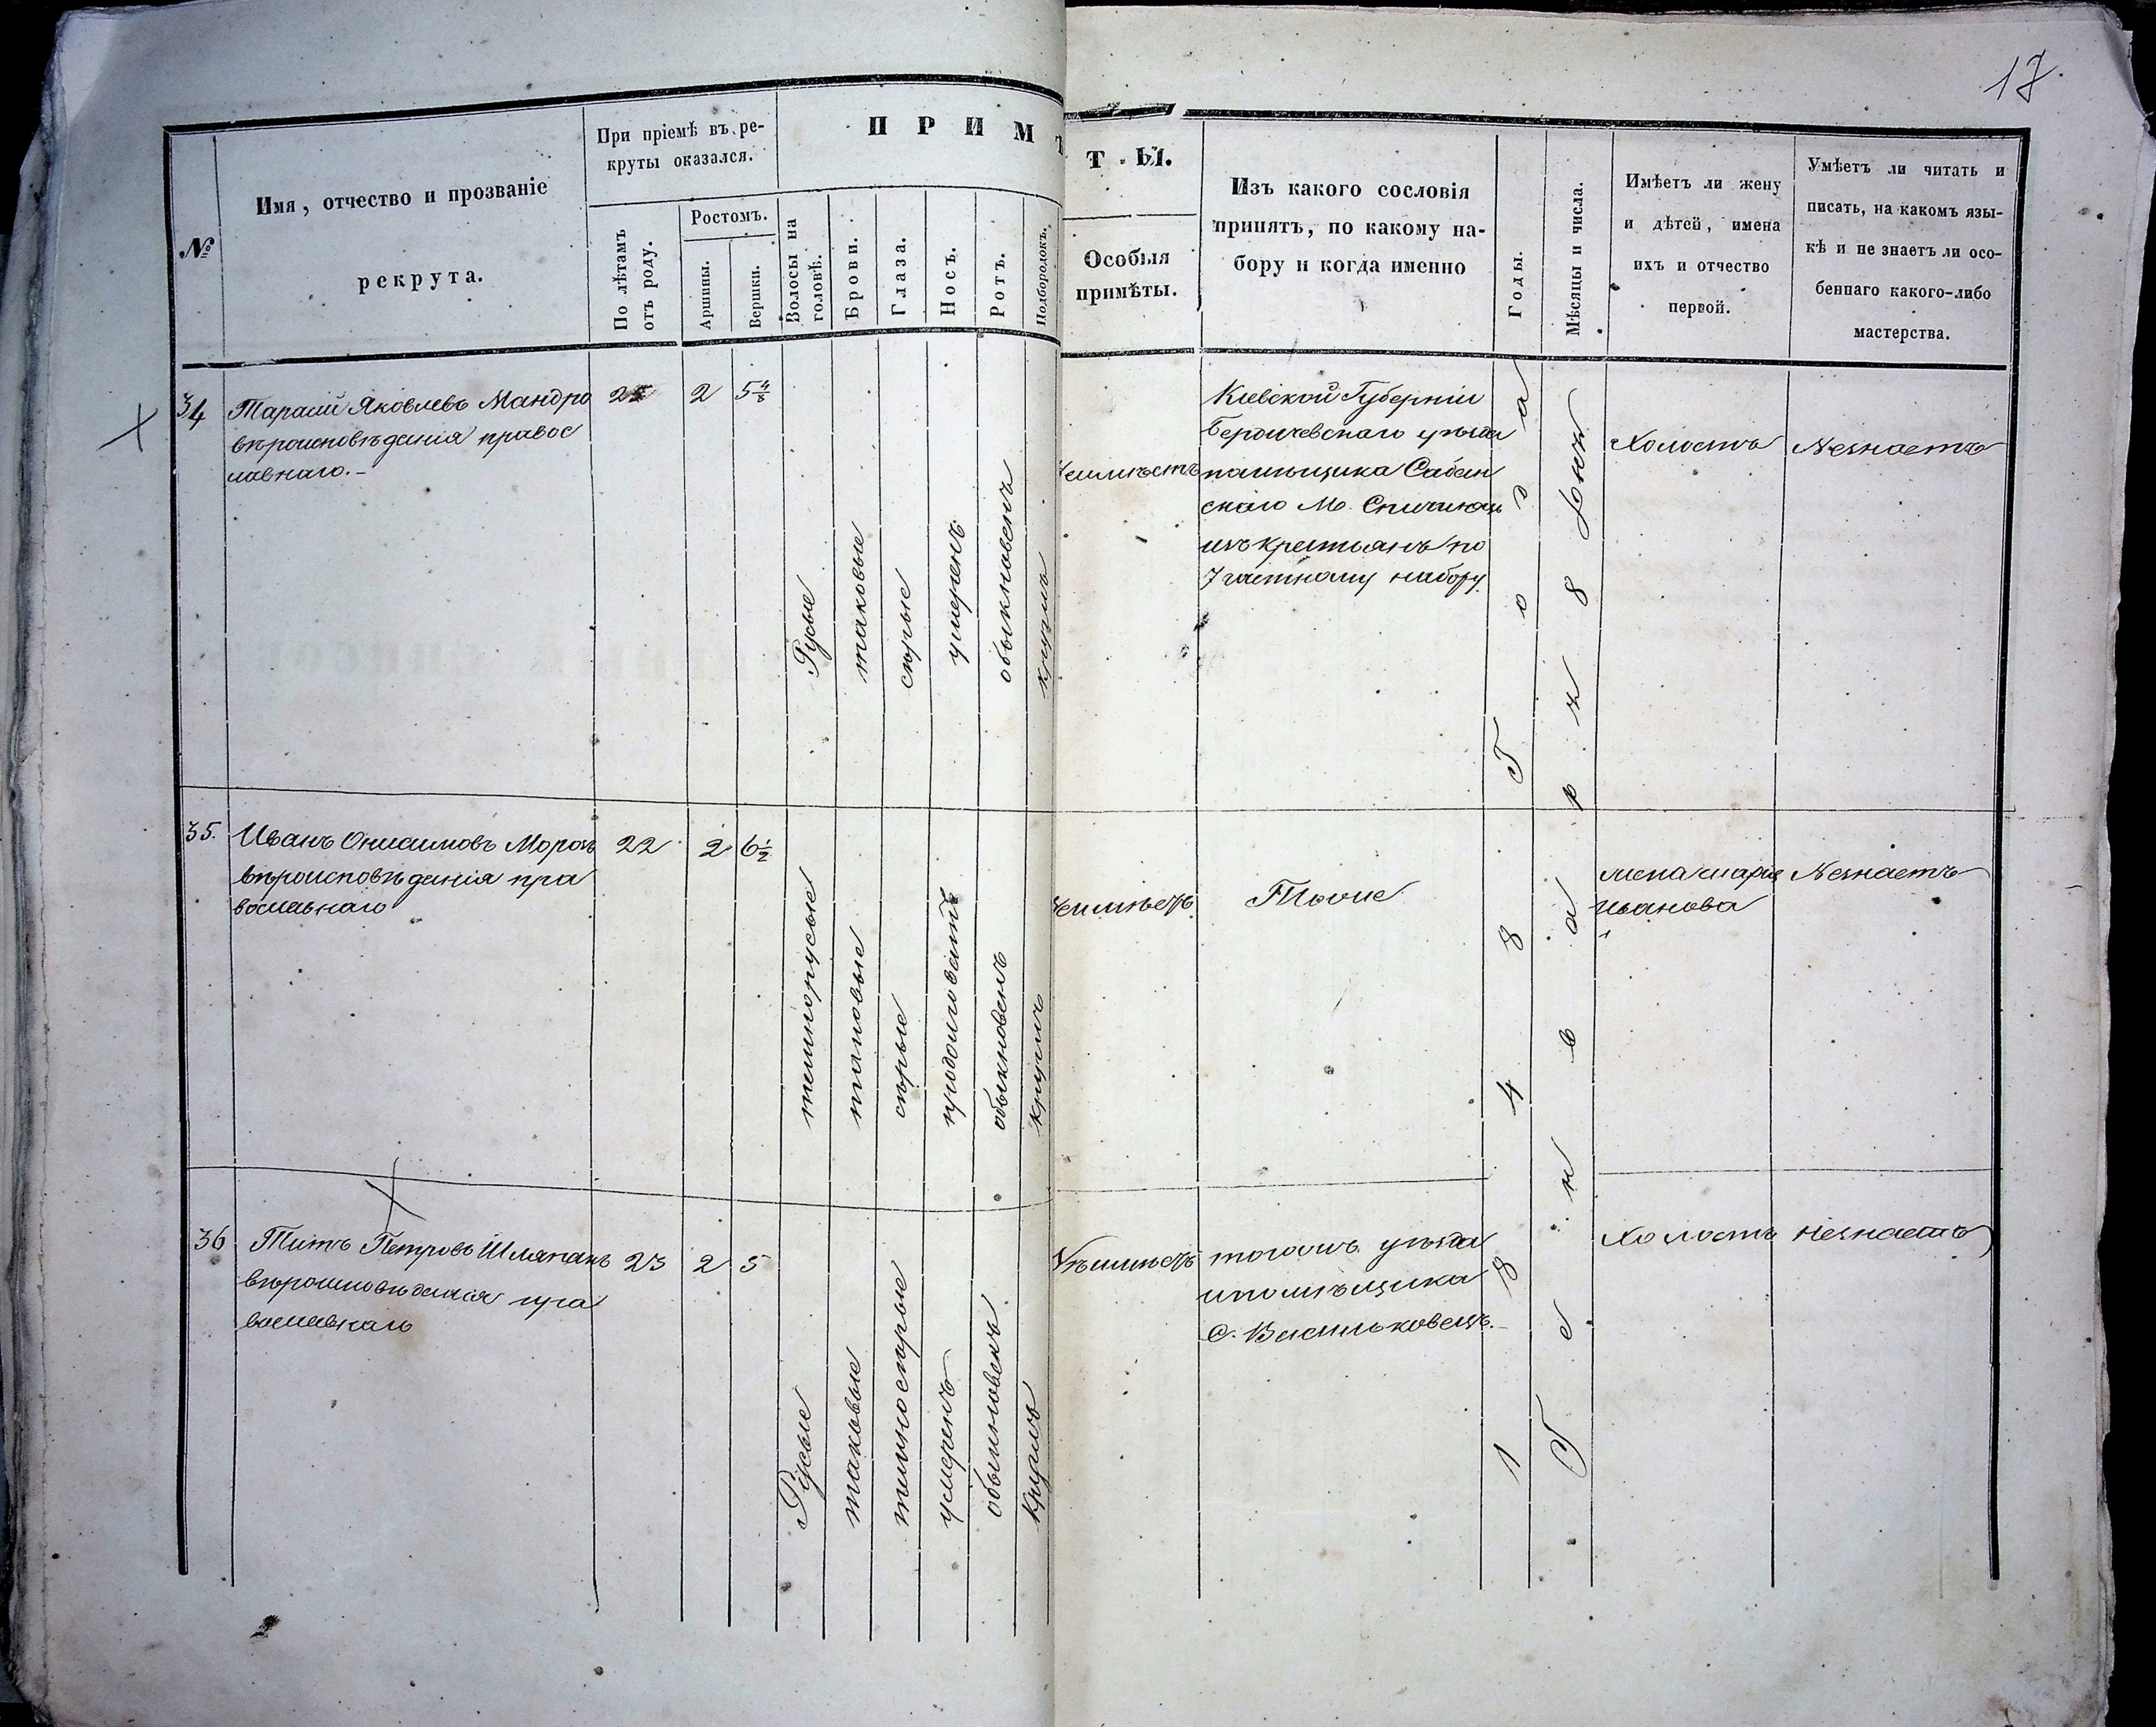 17.
№
Имя, отчество и прозваніе
рекрута.
При пріемѣ въ ре-
круты оказался.
По лѣтамъ
отъ роду.
Ростомъ.
Аршины.
Вершки.
ПРИМ
Т Ы.
Волосы на
головѣ.
Брови.
Глаза.
Носъ.
Ротъ.
Подбородокъ.
Особыя
примѣты.
Изъ какого сословія
принятъ, по какому на-
бору и когда именно
Годы.
Мѣсяцы и числа.
Имѣетъ ли жену
и дѣтей, имена
ихъ и отчество
первой.
Умѣетъ ли читать и
писать, на какомъ язы-
кѣ и не знаетъ ли осо-
беннаго какого-либо
мастерства.
34
Тарасій Яковлевъ Мандро
вѣроисповѣданія правос
лавнаго.-
2 5 4/8
Русые
таковые
сѣрые
умеренъ
обыкновенъ
круглъ
Кіевской Губерніи
Бердичевскаго уѣзда
помѣщика Сабан
скаго М. Спичинецъ
изъ крестьянъ по
7 частному набору
Холостъ
Незнаетъ
35.
Иванъ Онисимовъ Морозъ
вѣроисповѣданія пра
вославнаго
22 2 6 1/2
темнорусые
таковые
сѣрые
продолговатъ
обыкновенъ
круглъ
Тоже
жена Марія
Иванова
Незнаетъ
36
Титъ Петровъ Шляпакъ
вѣроисповѣданія пра
вославнаго
23 2 5
Русые
таковые
темносѣрые
умеренъ
обыкновенъ
круглъ
тогожъ уѣзда
ипомѣщика
С. Васильковецъ.
Холостъ
Незнаетъ
1848 Года
Генваря 8 дня